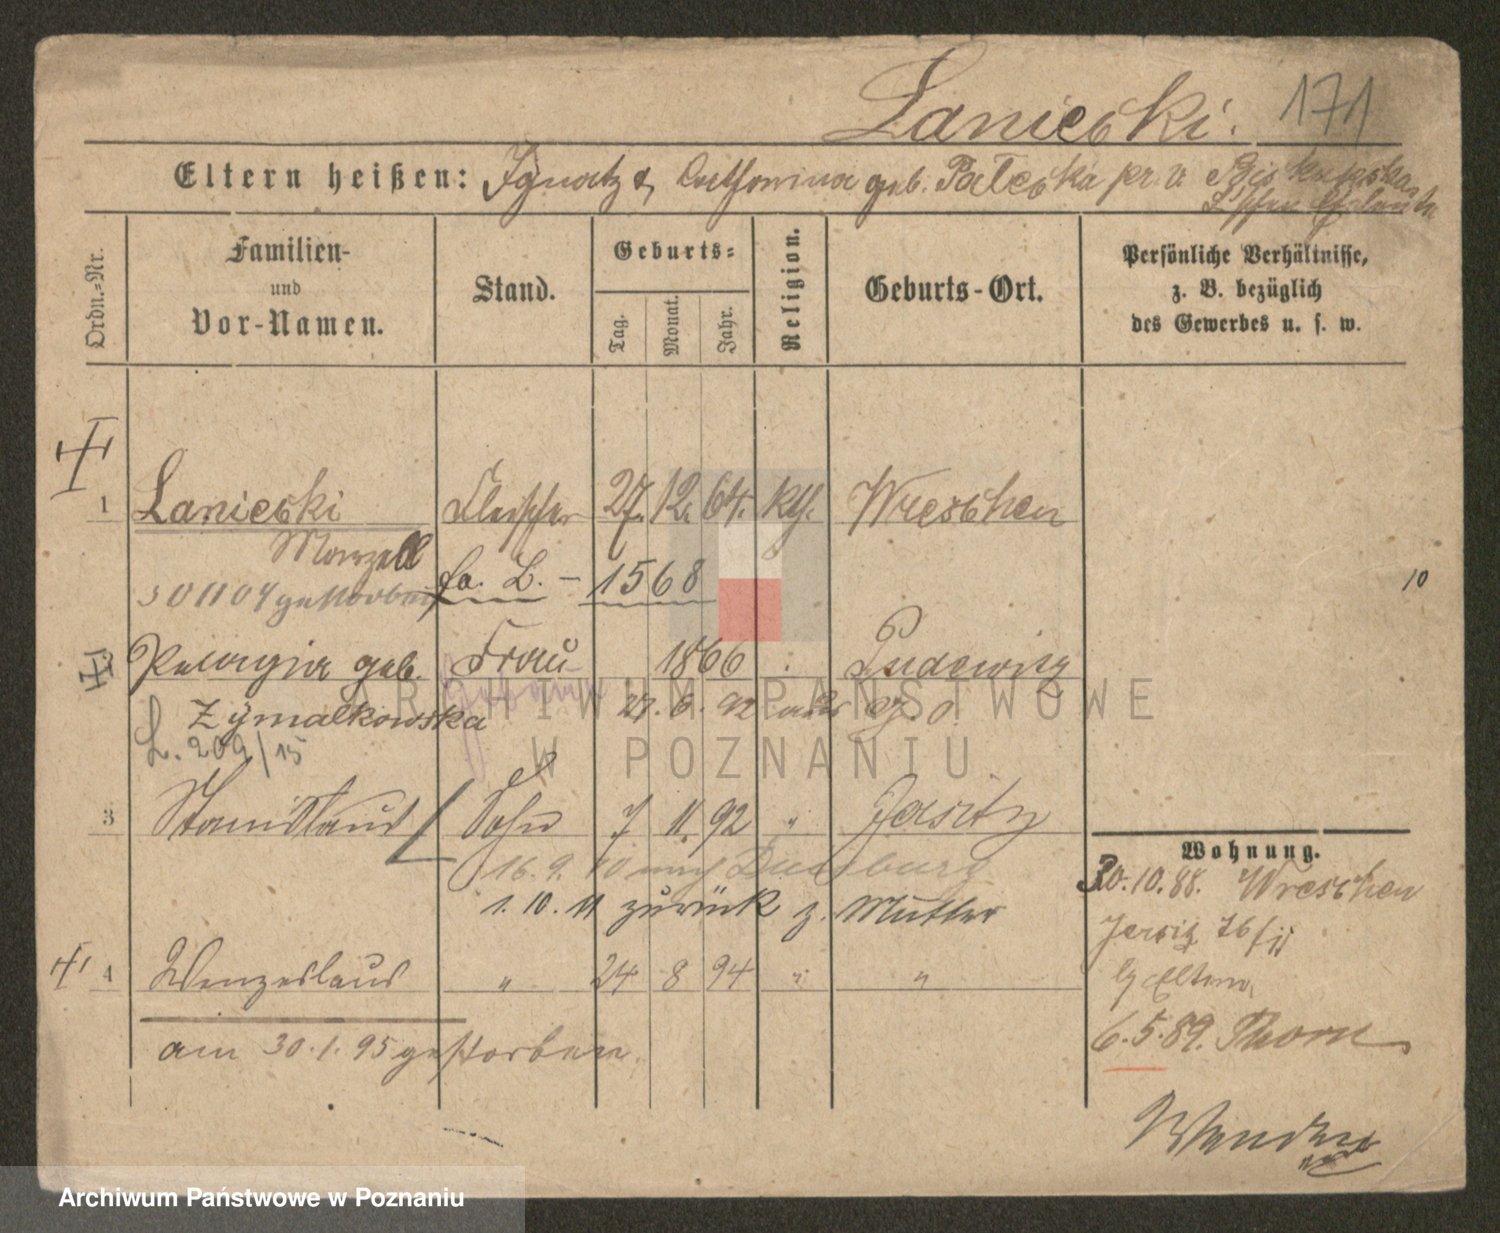 Laniecki. 171
Eltern heißen: Ignatz & geb. pr. v.
Ordn.-Nr.
Familien-
und
Vor-Namen.
Stand.
Geburts-
Tag.
Monat.
Jahr.
Religion.
Geburts-Ort.
Persönliche Verhältnisse,
z. B. bezüglich
des Gewerbes u. s. w.
1 Laniecki Fleischer 27. 12. 64. kth. Wreschen
Marzell
fa. L. – 1568
301104 gestorben
10
Pelagia geb. Frau 1866 Pudewitz
Zymalkowska 27. 6. 92
L. 209/15
3 Stanislaus Sohn 7 11. 92 " Jersitz
16. 9. 10 nach Duisburg
1. 10. 11 zurück z. Mutter
4 Wenzeslaus " 24 8 94 " "
am 30. 1. 95 gestorben.
Wohnung.
30. 10. 88. Wreschen
Jersitz 76
Eltern
6. 5. 89. Thorn
ARCHIWUM PAŃSTWOWE
W POZNANIU
Archiwum Państwowe w Poznaniu